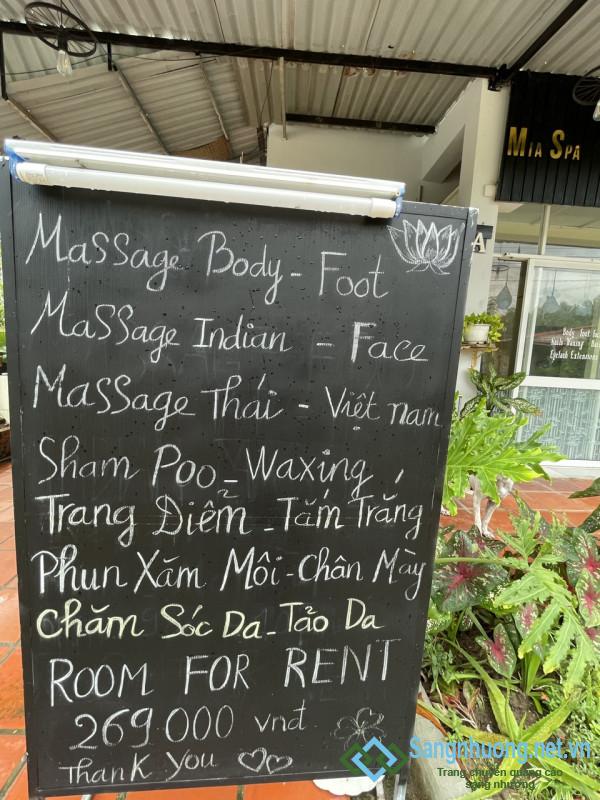 MIA SPA
A
Massage Body - Foot
Massage Indian - Face
Massage Thái - Việt nam
Sham Poo - Waxing
Trang Điểm - Tắm Trắng
Phun Xăm Môi - Chân Mày
Chăm Sóc Da - Tảo Da
ROOM FOR RENT
269.000 vnđ
Thank you
Body foot
Nails Waxing
Eyelash Extensions
Sangnhuong.net.vn
Trang chuyên quảng cáo
sang nhượng